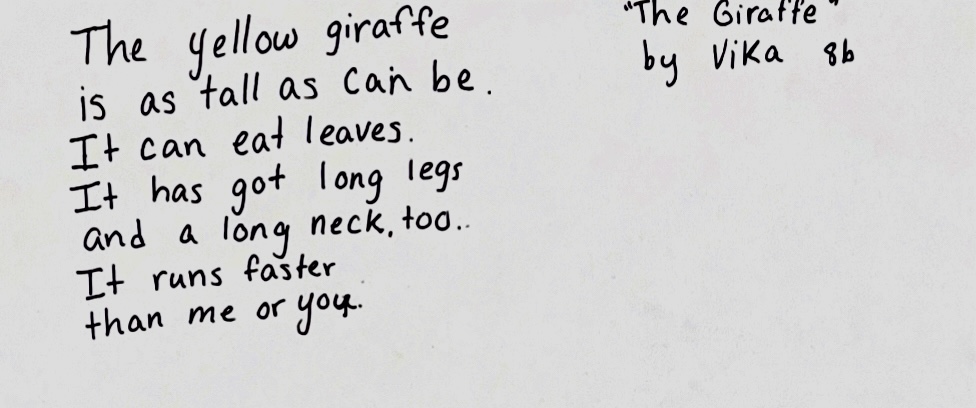 The yellow giraffe
is as tall as can be.
It can eat leaves.
It has got long legs
and a long neck, too..
It runs faster
than me or you.
"The Giraffe"
by Vika 8b